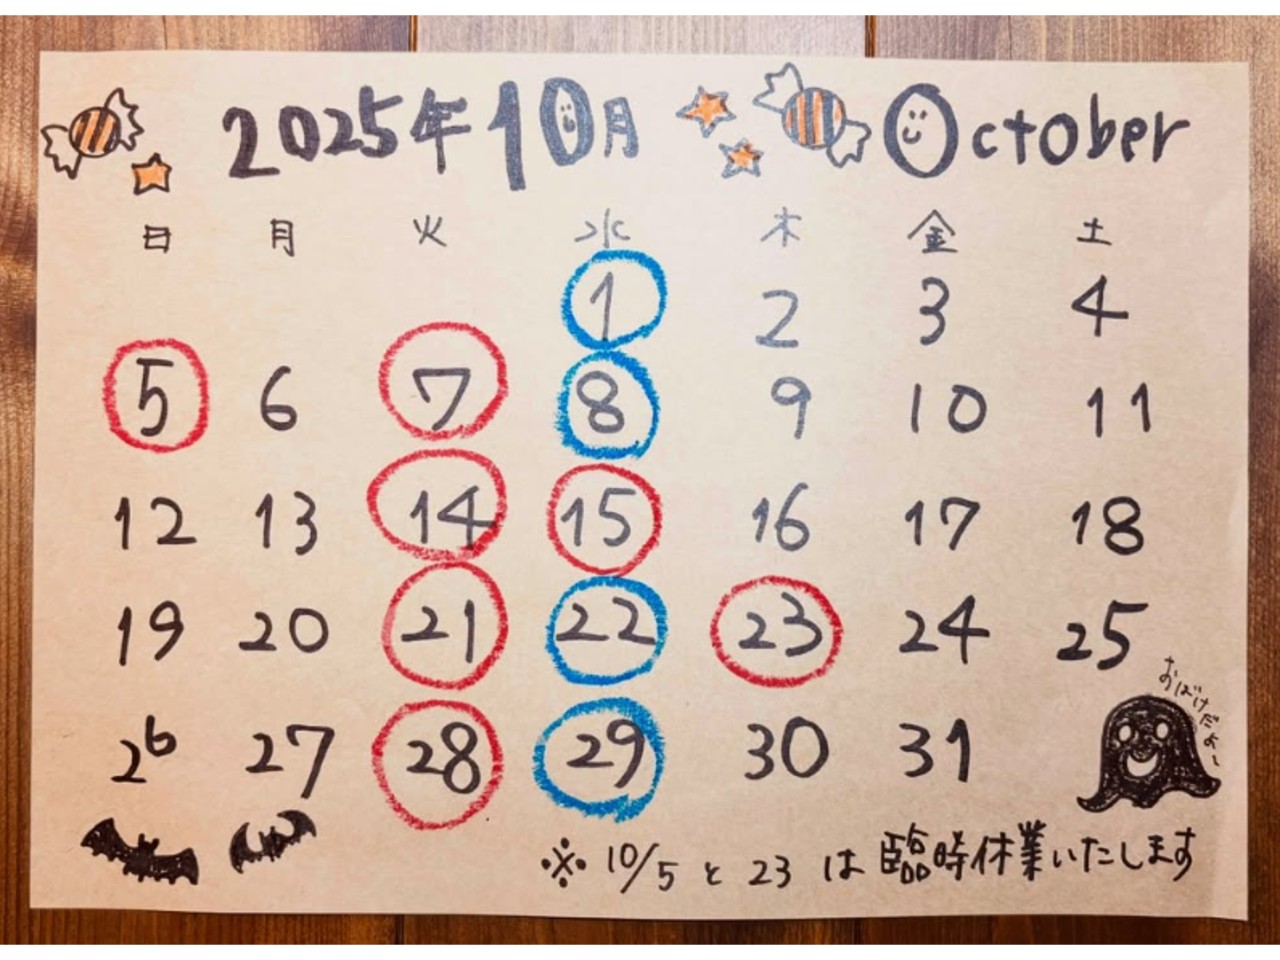 2025年10月 October
日 月 火 水 木 金 土
1 2 3 4
5 6 7 8 9 10 11
12 13 14 15 16 17 18
19 20 21 22 23 24 25
おばけだぁ〜
26 27 28 29 30 31
※ 10/5 と 23 は 臨時休業いたします